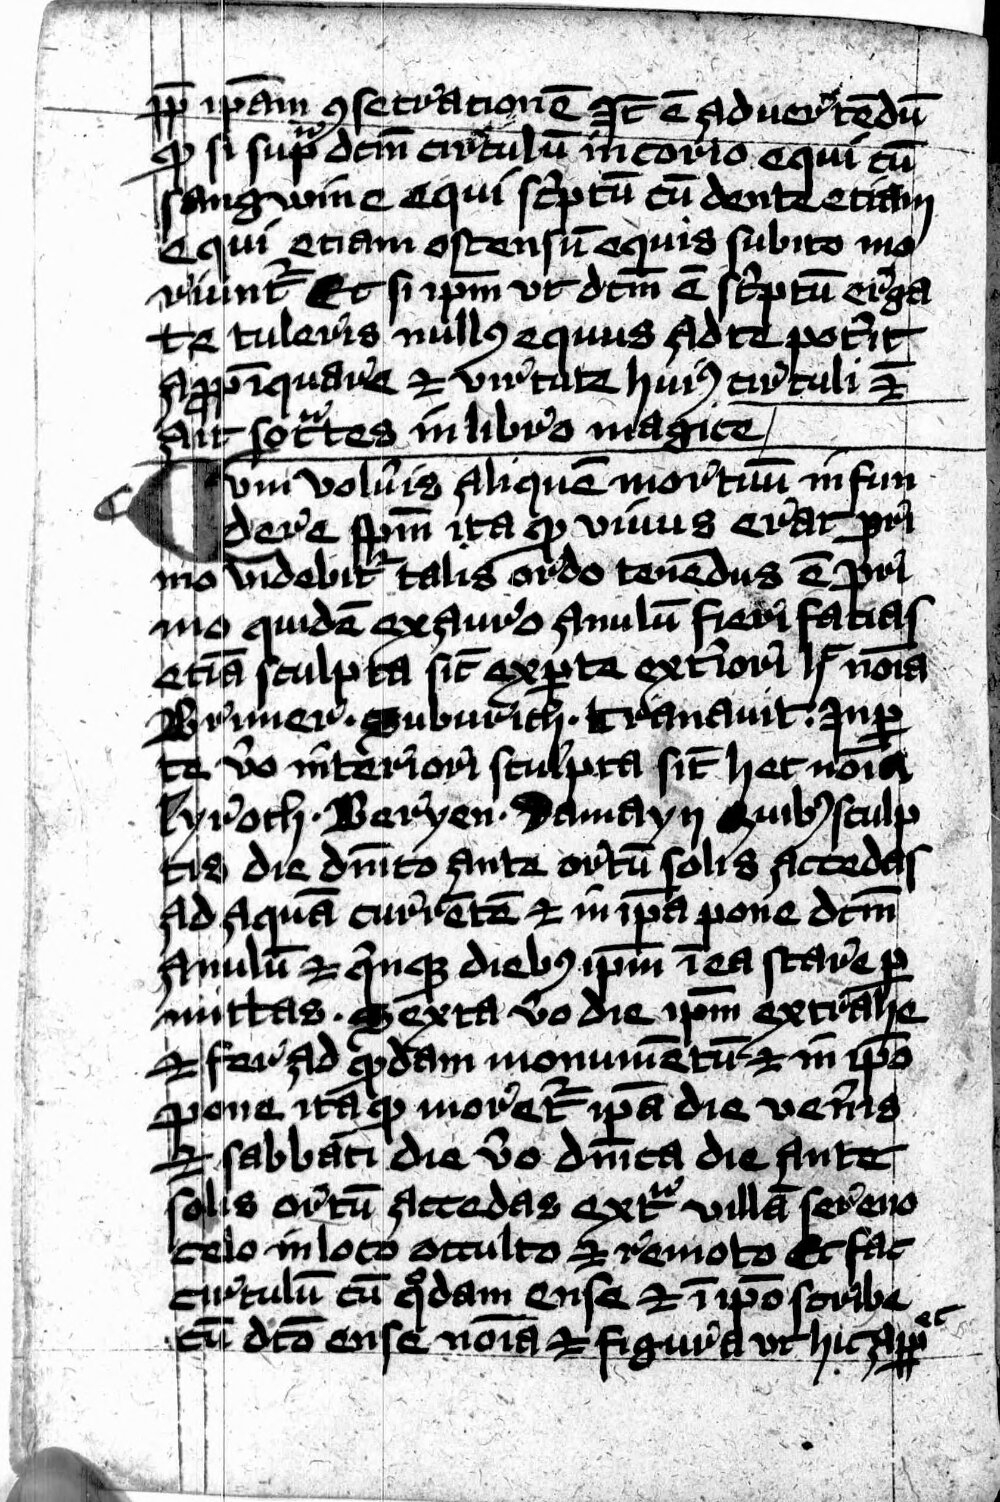 ꝓp̄ ip̄am ꝯsecrationē Itē ē aduertēdū
ꝙ si sup̄ dc̄m circulū in corio equi cū
sangwine equi sc͛ptū cū dente etiam
equi etiam ostensū equis subito mo
riunt᷑ Et si ip̄m vt dc̄m ē sc͛ptū erga
te tuleris null᷒ equus ad te pot͛it
aꝓpīquare ⁊ virtute hui᷒ circuli ⁊
ait socrates in libro magice
Cum volu͛is aliquē mortuū infun
dere sp̄m ita ꝙ viuus erat pri
mo videbit᷑ talis ordo tenēdus ē pri
mo quidē ex auro anulū fieri facias
etiā sculpta sīt ex ꝑte ext͛iori h̄ noīa
Brimer · Suburith · Tranauit · In ꝑ
te v͛o interiori sculpta sīt hec noīa
Lyroth · Beryen · Damayn Quib᷒ sculp
tis die dn̄ico ante ortū solis accedas
ad aquā currētē ⁊ in ip̄a pone dc̄m
anulū ⁊ qͥnqꝫ dieb᷒ ip̄m ī ea stare ꝑ
mittas · Sexta v͛o die ip̄m extrahe
⁊ fer ad qͦddam monumētū ⁊ in ip̄o
pone ita ꝙ moret᷑ ip̄a die ven͛is
⁊ sabbati die v͛o dn̄ica die ante
solis ortū accedas extᷓ villā sereno
celo in loco occulto ⁊ remoto Et fac
circulū cū qͦdam ense ⁊ ī ip̄o scribe
cū dc̄o ense noīa ⁊ figura vt hic app̄et